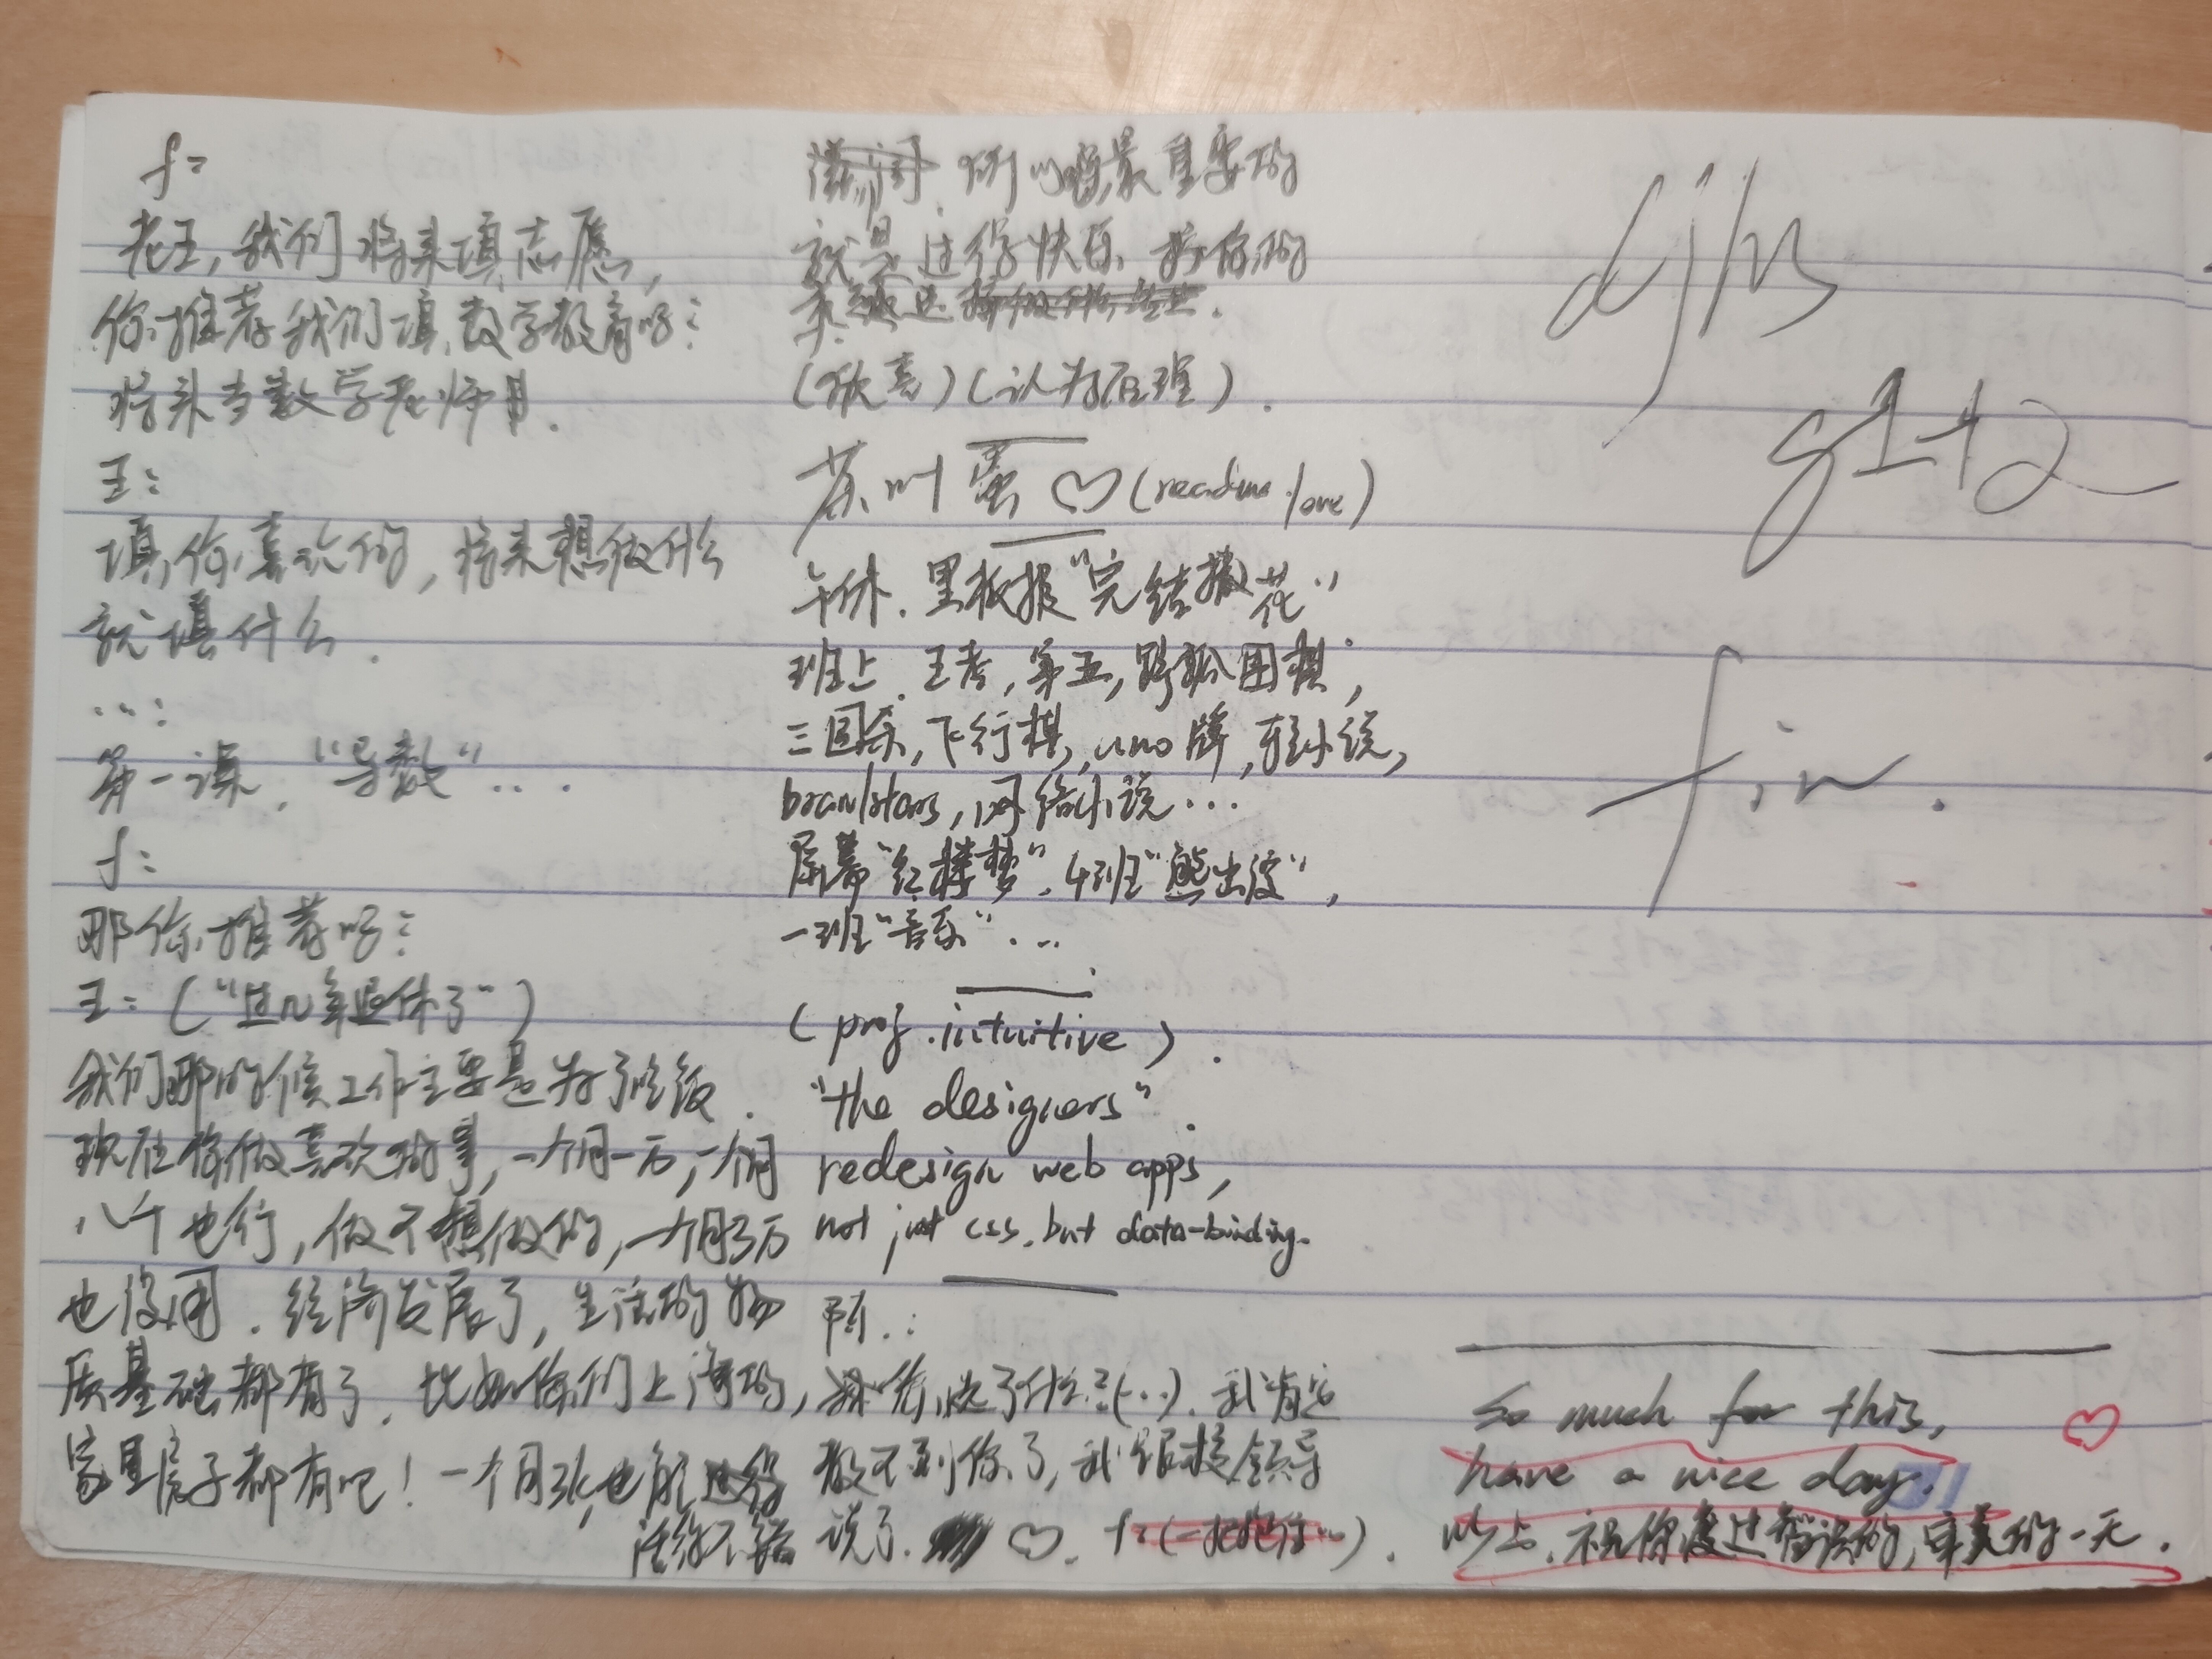 f:
老王,我们将来填志愿,
你推荐我们填数学教育吗?
将来当数学老师
王:
填你喜欢的,将来想做什么
就填什么.
...:
第一课,"导数"...
f:
那你推荐吗?
王:("过几年退休了")
我们那时候工作主要是为了吃饭.
现在你做喜欢的事,一个月一万,一个月
八千也行,做不想做的,一个月3万
也没用.经济发展了,生活的物
质基础都有了.比如你们上海的,
家里房子都有吧!一个月 也能过得
活得不错
所以 最重要的
就是过得快乐.
(欣喜)(认为有理).
茶叶蛋 ♡(reading love)
午休.黑板报"完结撒花"
班上.王者,第五, 围棋,
三国杀,飞行棋,uno牌,轻小说,
brawlstars,网络小说...
屏幕"红楼梦".4班"熊出没",
一班"音乐"...
(prof.intuitive).
"the designers".
redesign web apps,
not just css.but data-binding.
陈.:
选了什么?(...).我肯定
教不到你了,我跟 领导
说了. ♡. f:( ...).
djhs
g1-t2
fin.
so much for this, ♡
have a nice day.
以上.祝你度过 的,审美的一天.